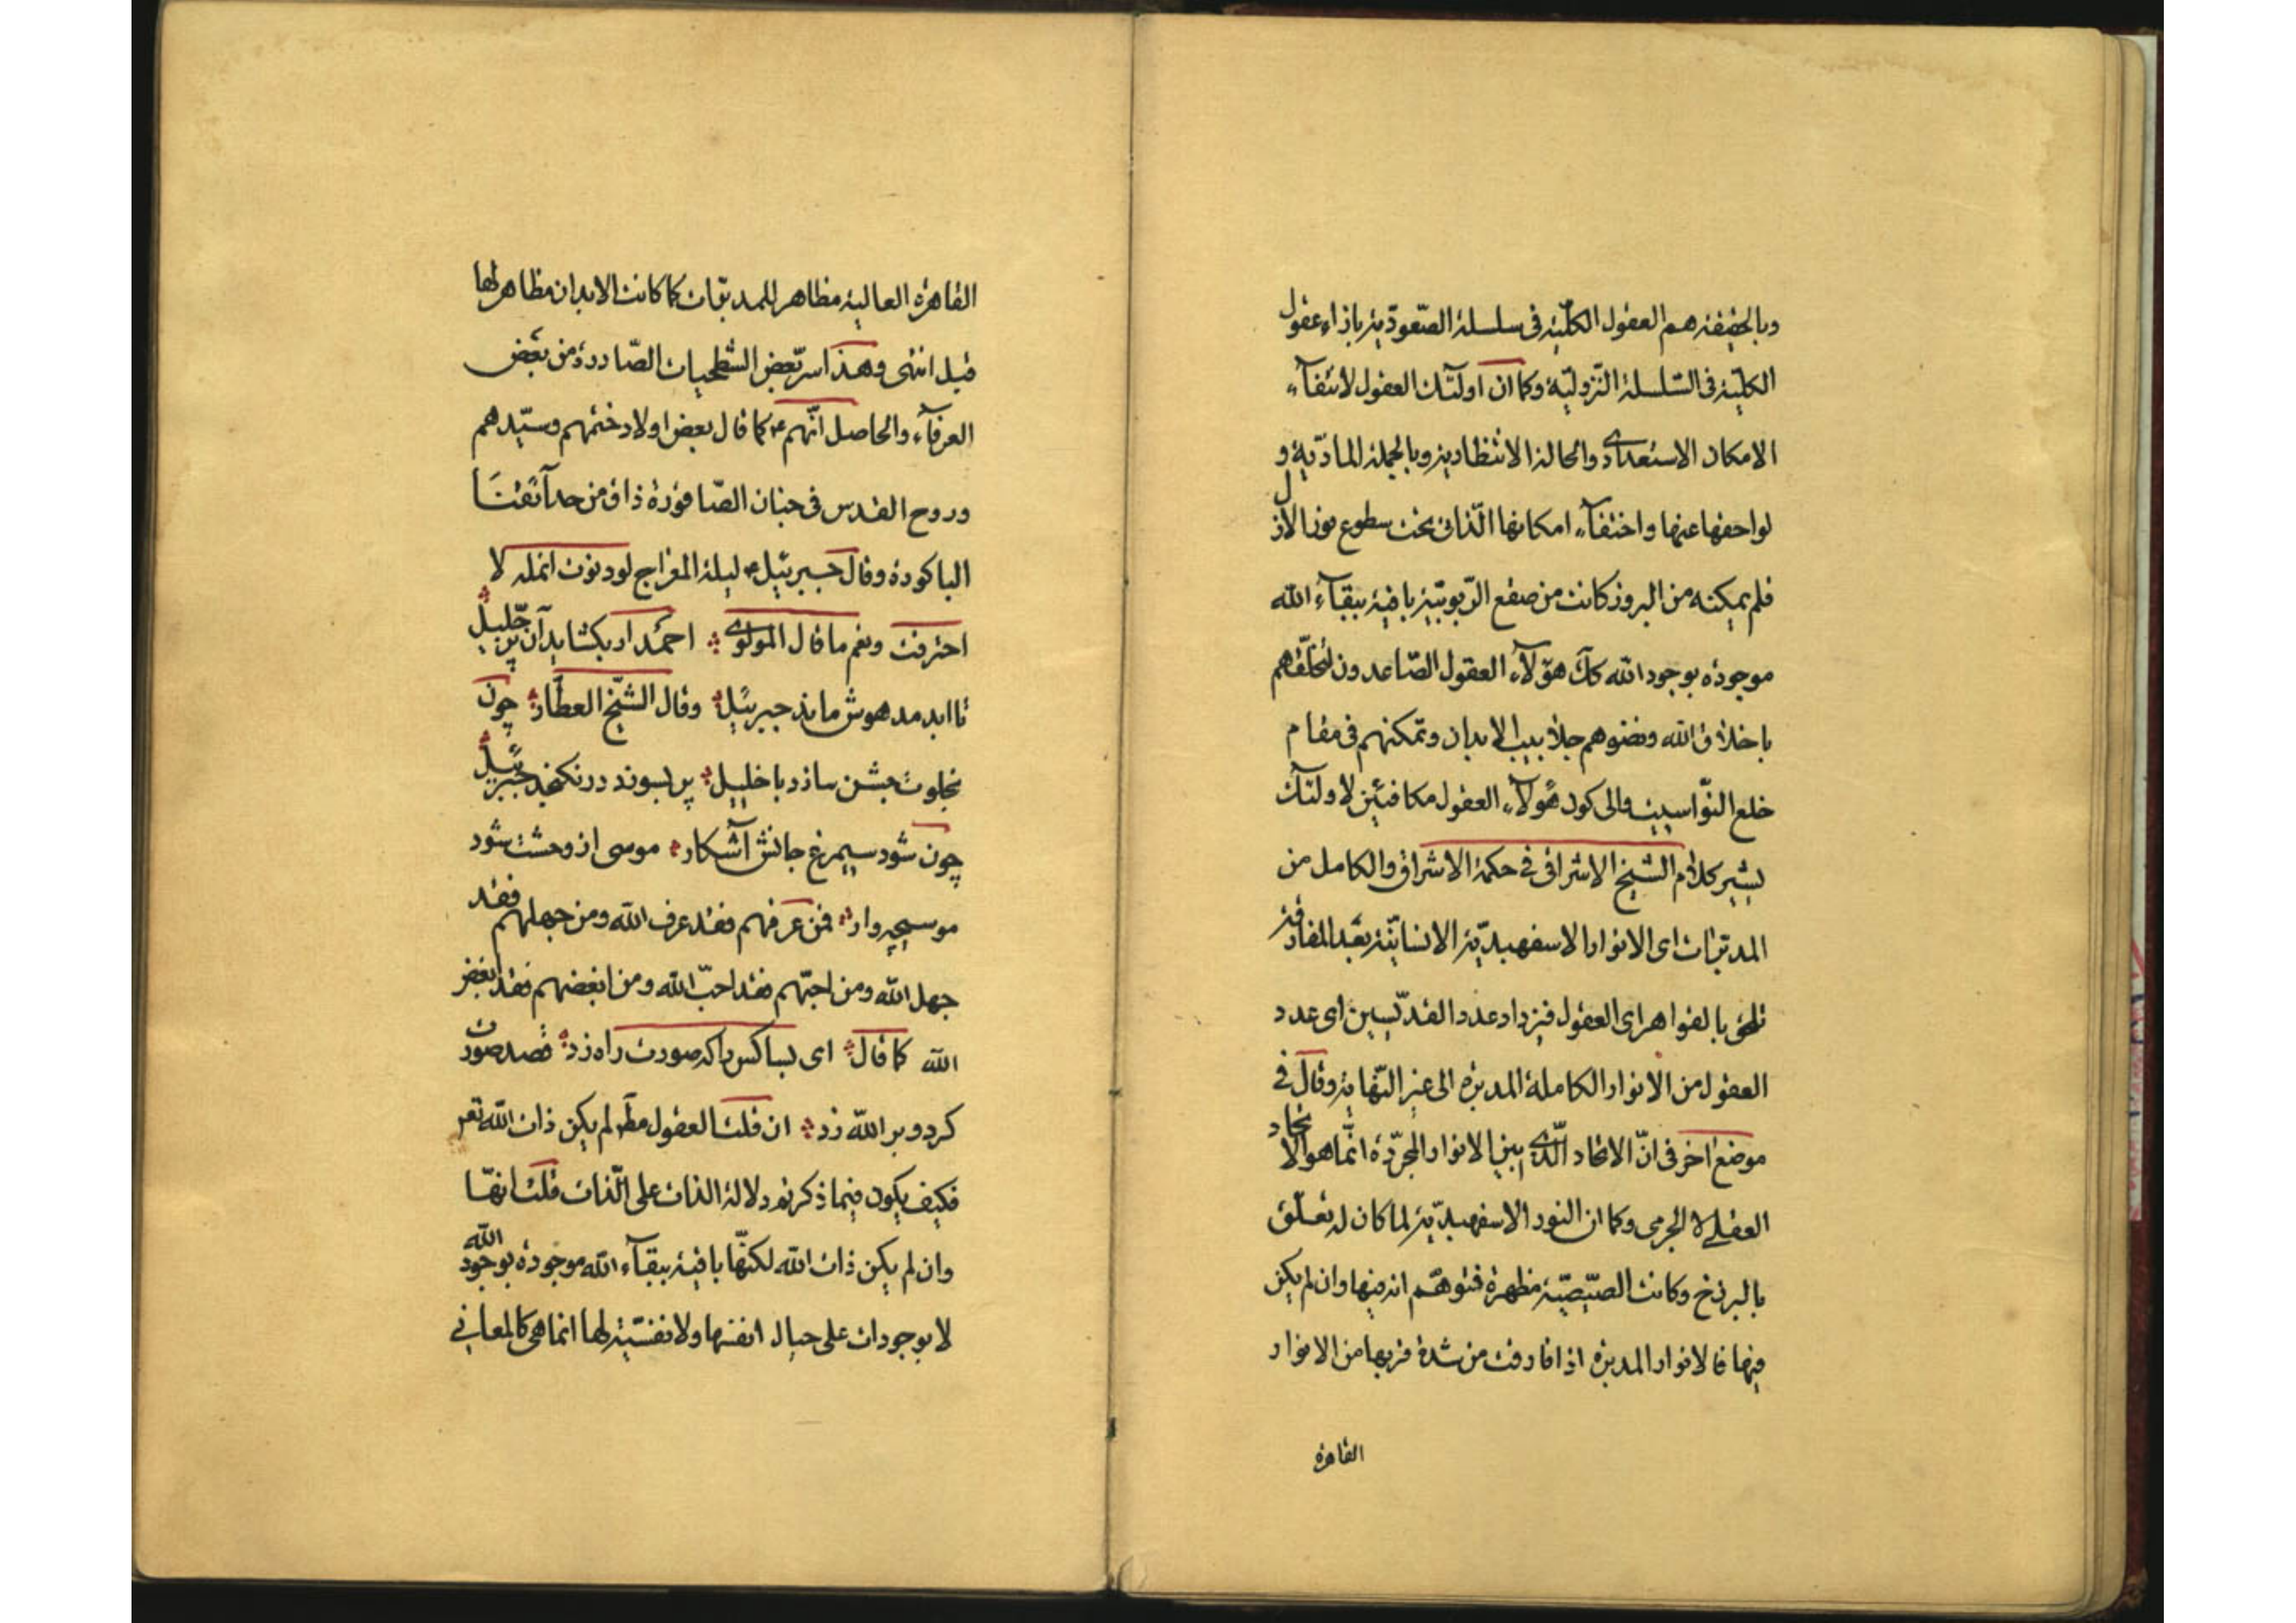 وبالحقيقة هم العقول الكلّية فى سلسلة الصّعوديّة بازاء عقول
الكلّية فى السّلسلة النّزوليّة وكما ان اولئك العقول لانتفآء
الامكان الاستعدادى والحالة الانتظارية وبالجملة المادّية و
لواحقها عنها واختفآء امكانها الذّاتى تحت سطوع نور الازل
فلم يمكنه من البروز كانت من صقع الرّبوبيّة باقية ببقآء الله
موجودة بوجود الله كك هؤلآء العقول الصّاعدون لتخلّقهم
باخلاق الله ونضوهم جلابيب الابدان وتمكنهم فى مقام
خلع النّواسيت والى كون هؤلآء العقول مكافئين لاولئك
يشير كلام الشّيخ الاشراقى فى حكمة الاشراق والكامل من
المدبّرات اى الانوار الاسفهبديّة الانسانيّة بعد المفارقة
تلحق بالقواهر اى العقول فيزداد عدد القدّيسين اى عدد
العقول من الانوار الكاملة المدبرة الى غير النّهاية وقال فى
موضع اخر فى انّ الاتحاد الّذى بين الانوار المجرّدة انّما هو الاتحاد
العقلى لا الجرمى وكما ان النور الاسفهبديّة لما كان له تعلّق
بالبرزخ وكانت الصّيصيّة مظهرة فتوهّم انه فيها وان لم يكن
فيها فالانوار المدبرة اذا فارقت من شدة قربها من الانوار
القاهرة
القاهرة العالية مظاهر للمدبّرات كما كانت الابدان مظاهر لها
قبل انتهى وهذا سرّ بعض الشّطحيات الصّادرة من بعض
العرفآء والحاصل انّهم ع كما قال بعض اولاد ختمهم وسيّدهم
وروح القدس فى جنان الصّاقورة ذاق من حدآئقنا
الباكورة وقال جبرئيل ع ليلة المعراج لو دنوت انملة لا
احترقت ونعم ما قال المولوى احمد ار بكشايد آن پر جليل
تا ابد مدهوش ماند جبرئيل وقال الشّيخ العطّار چون
بخلوت جشن سازد با خليل پر بسوزد در نكنجد جبرئيل
چون شود سيمرغ جانش آشكار موسى از وحشت شود
موسيچه وار فمن عرفهم فقد عرف الله ومن جهلهم فقد
جهل الله ومن احبّهم فقد احبّ الله ومن ابغضهم فقد ابغض
الله كما قال اى بسا كس را كه صورت راه زد قصد صورت
كرد وبر الله زد ان قلت العقول مط لم يكن ذات الله تع
فكيف يكون فيما ذكرته دلالة الذات على الذّات قلت انهّا
وان لم يكن ذات الله لكنّها باقية ببقآء الله موجودة بوجود الله
لا بوجودات على حيال انفسها ولا نفسيّة لها انما هى كالمعانى